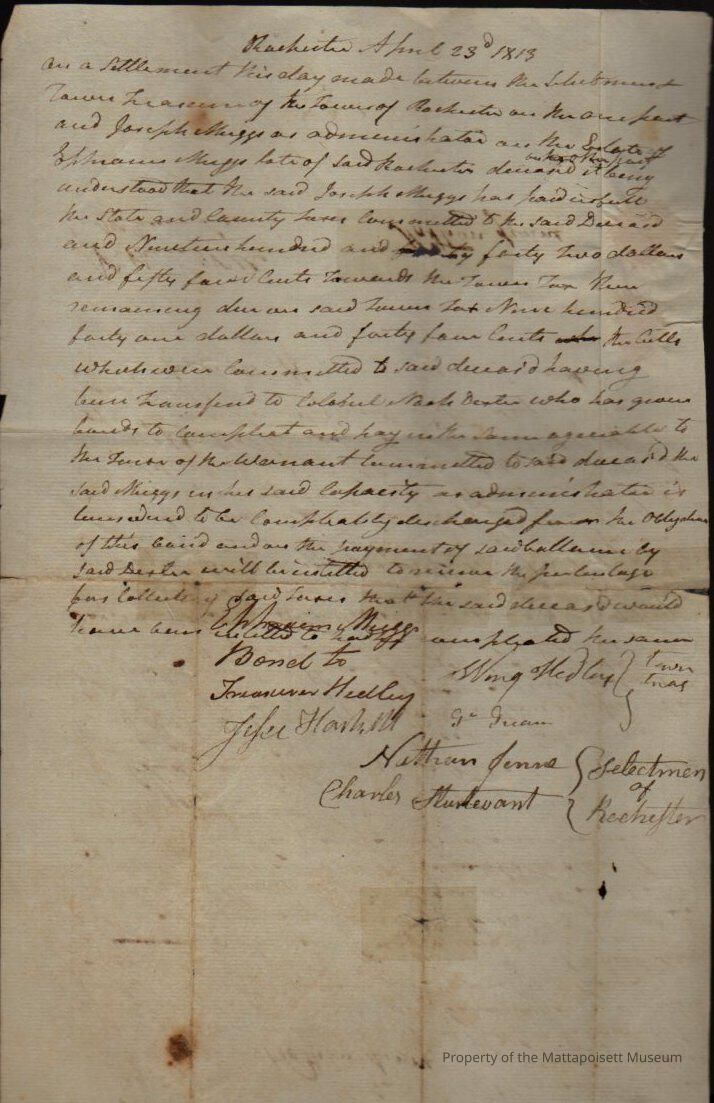 Rochester April 23d 1813
on a Settlement this day made between the Selectmen &
Town Treasurer of the Town of Rochester on the one part
and Joseph Meiggs as administrator on the Estate of
Ephraim Meiggs late of said Rochester deceasd on the other part it being
understood that the said Joseph Meiggs has paid in full
the State and County taxes Committed to the said Deceasd
and Nineteen hundred and forty two dollars
and fifty four Cents Towards the Town Tax then
remaining due on said Town Tax Nine hundred
forty one dollars and forty four Cents the bills
which were Committed to said deceasd having
been transferd to Colonel Dexter who has given
bonds to Compleat and pay in the same agreeable to
the Tenor of the Warrant Committed to said deceasd the
said Meiggs in his said Capacity as administrator is
to be Compleatly discharged from the Obligation
of this bond and on the payment of said ballance by
said Dexter will be intitled to receive the percentage
for Collecting said taxes that the said deceasd would
have been intitled to had he compleated the same
Ephraim Meiggs
Bond to
Treasurer Hedley
Wing Hedley } Town
Treas
Jesse Haskell
Nathan Jenne } Selectmen
of
Charles Sturtevant } Rochester
Property of the Mattapoisett Museum